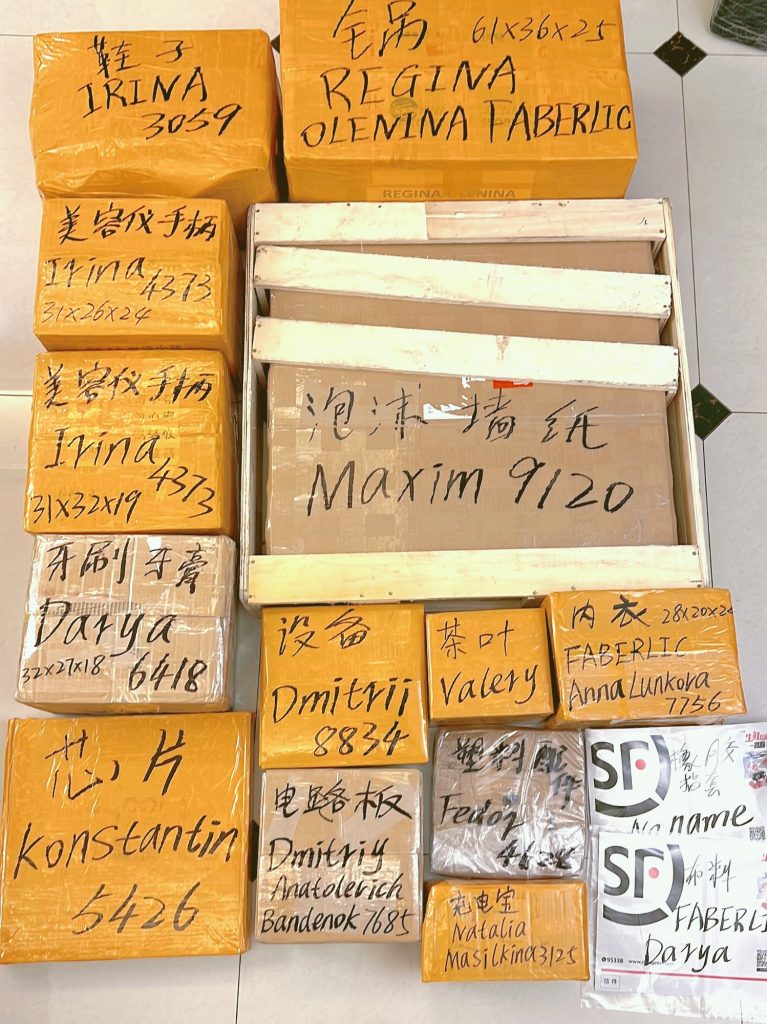 鞋子
IRINA
3059
全锅 61x36x25
REGINA
OLENINA FABERLIC
REGINA OLENINA
美容仪手柄
Irina 4373
31x26x24
美容仪手柄
Irina
31x32x19 4373
泡沫墙纸
Maxim 9120
牙刷牙膏
Darya
32x27x18 6418
设备
Dmitrii
8834
茶叶
Valery
内衣 28x20x24
FABERLIC
Anna Lunkova
7756
芯片
Konstantin
5426
电路板
Dmitriy
Anatolerich
Bandenok 7685
塑料配件
Fedor
充电宝
Natalia
Masilkina 3125
SF
橡胶
指套
No name
SF
布料
FABERLI
Darya
95338
信件